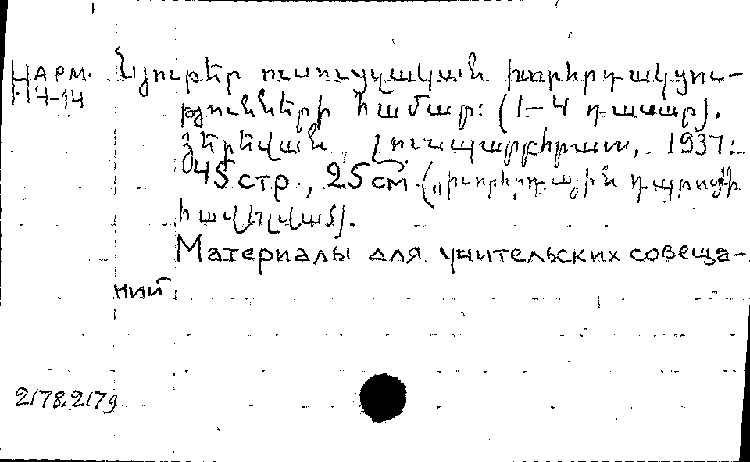 Нарм. Նյութեր ուսուցչական խորհրդակցու-
4-14 թյունների համար: (1-4 դասար).
Յերեվան, Լուսպարբհրատ, 1937:
45 стр., 25 см. („Խորհրդային դպրոցի"
հավելված).
Материалы для учительских совеща-
ний.
2178,2179